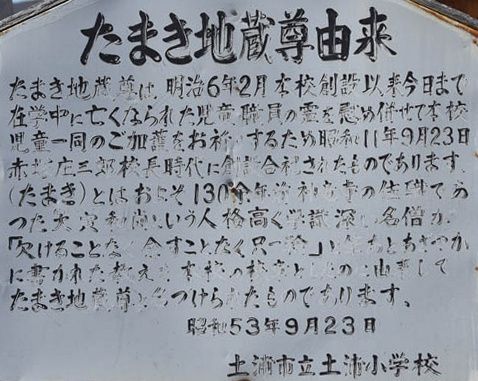 たまき地蔵尊由来
たまき地蔵尊は、明治6年2月本校創設以来今日まで
在学中に亡くなられた児童職員の霊を慰め併せて本校
児童一同のご加護をお祈りするため昭和11年9月23日
赤塚庄三郎校長時代に創設合祀されたものであります。
(たまき)とはおよそ130余年前神龍寺の住職であ
つた大寅和尚という人格高く学識深い名僧が
「欠けることなく余すことなく只一輪」
に書かれた教えを本校の校章としたのに由来して
たまき地蔵尊と名づけられたものであります、
昭和53年9月23日
土浦市立土浦小学校